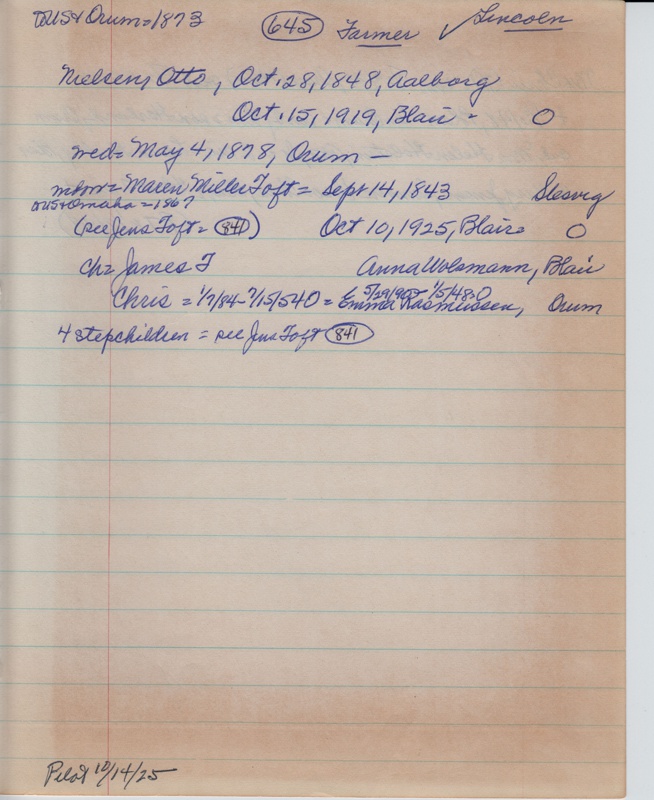 toUS & Orum = 1873 645 Farmer ✓ Lincoln
Nielsen, Otto, Oct. 28, 1848, Aalborg
Oct. 15, 1919, Blair - O
wed = May 4, 1878, Orum -
= Maren Miller Toft = Sept 14, 1843 Slesvig
toUS & Omaha = 1867
(see Jens Toft = 841) Oct 10, 1925, Blair = O
Ch = James T Anna Wolsmann, Blair
5/29/90 1/5/48 O
Chris = 1/7/84 - 7/15/54 O = Emma Rasmussen, Orum
4 stepchildren = see Jens Toft 841
Pilot 10/14/25